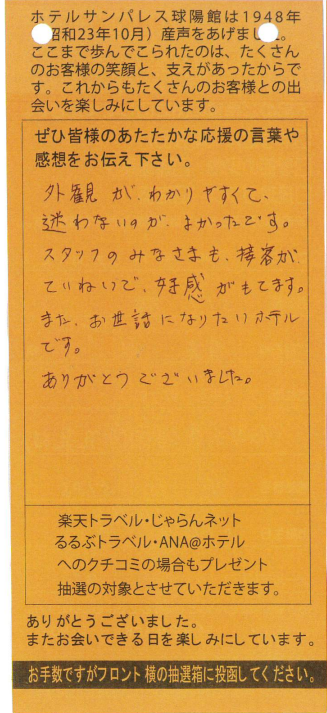 ホテルサンパレス球陽館は1948年
昭和23年10月）産声をあげまし。
ここまで歩んでこられたのは、たくさん
のお客様の笑顔と、支えがあったからで
す。これからもたくさんのお客様との出
会いを楽しみにしています。
ぜひ皆様のあたたかな応援の言葉や
感想をお伝え下さい。
外観が、わかりやすくて、
迷わないのが、よかったです。
スタッフのみなさまも、接客が
ていねいで、好感がもてます。
また、お世話になりたいホテル
です。
ありがとうございました。
楽天トラベル・じゃらんネット
るるぶトラベル・ANA@ホテル
へのクチコミの場合もプレゼント
抽選の対象とさせていただきます。
ありがとうございました。
またお会いできる日を楽しみにしています。
お手数ですがフロント横の抽選箱に投函してください。